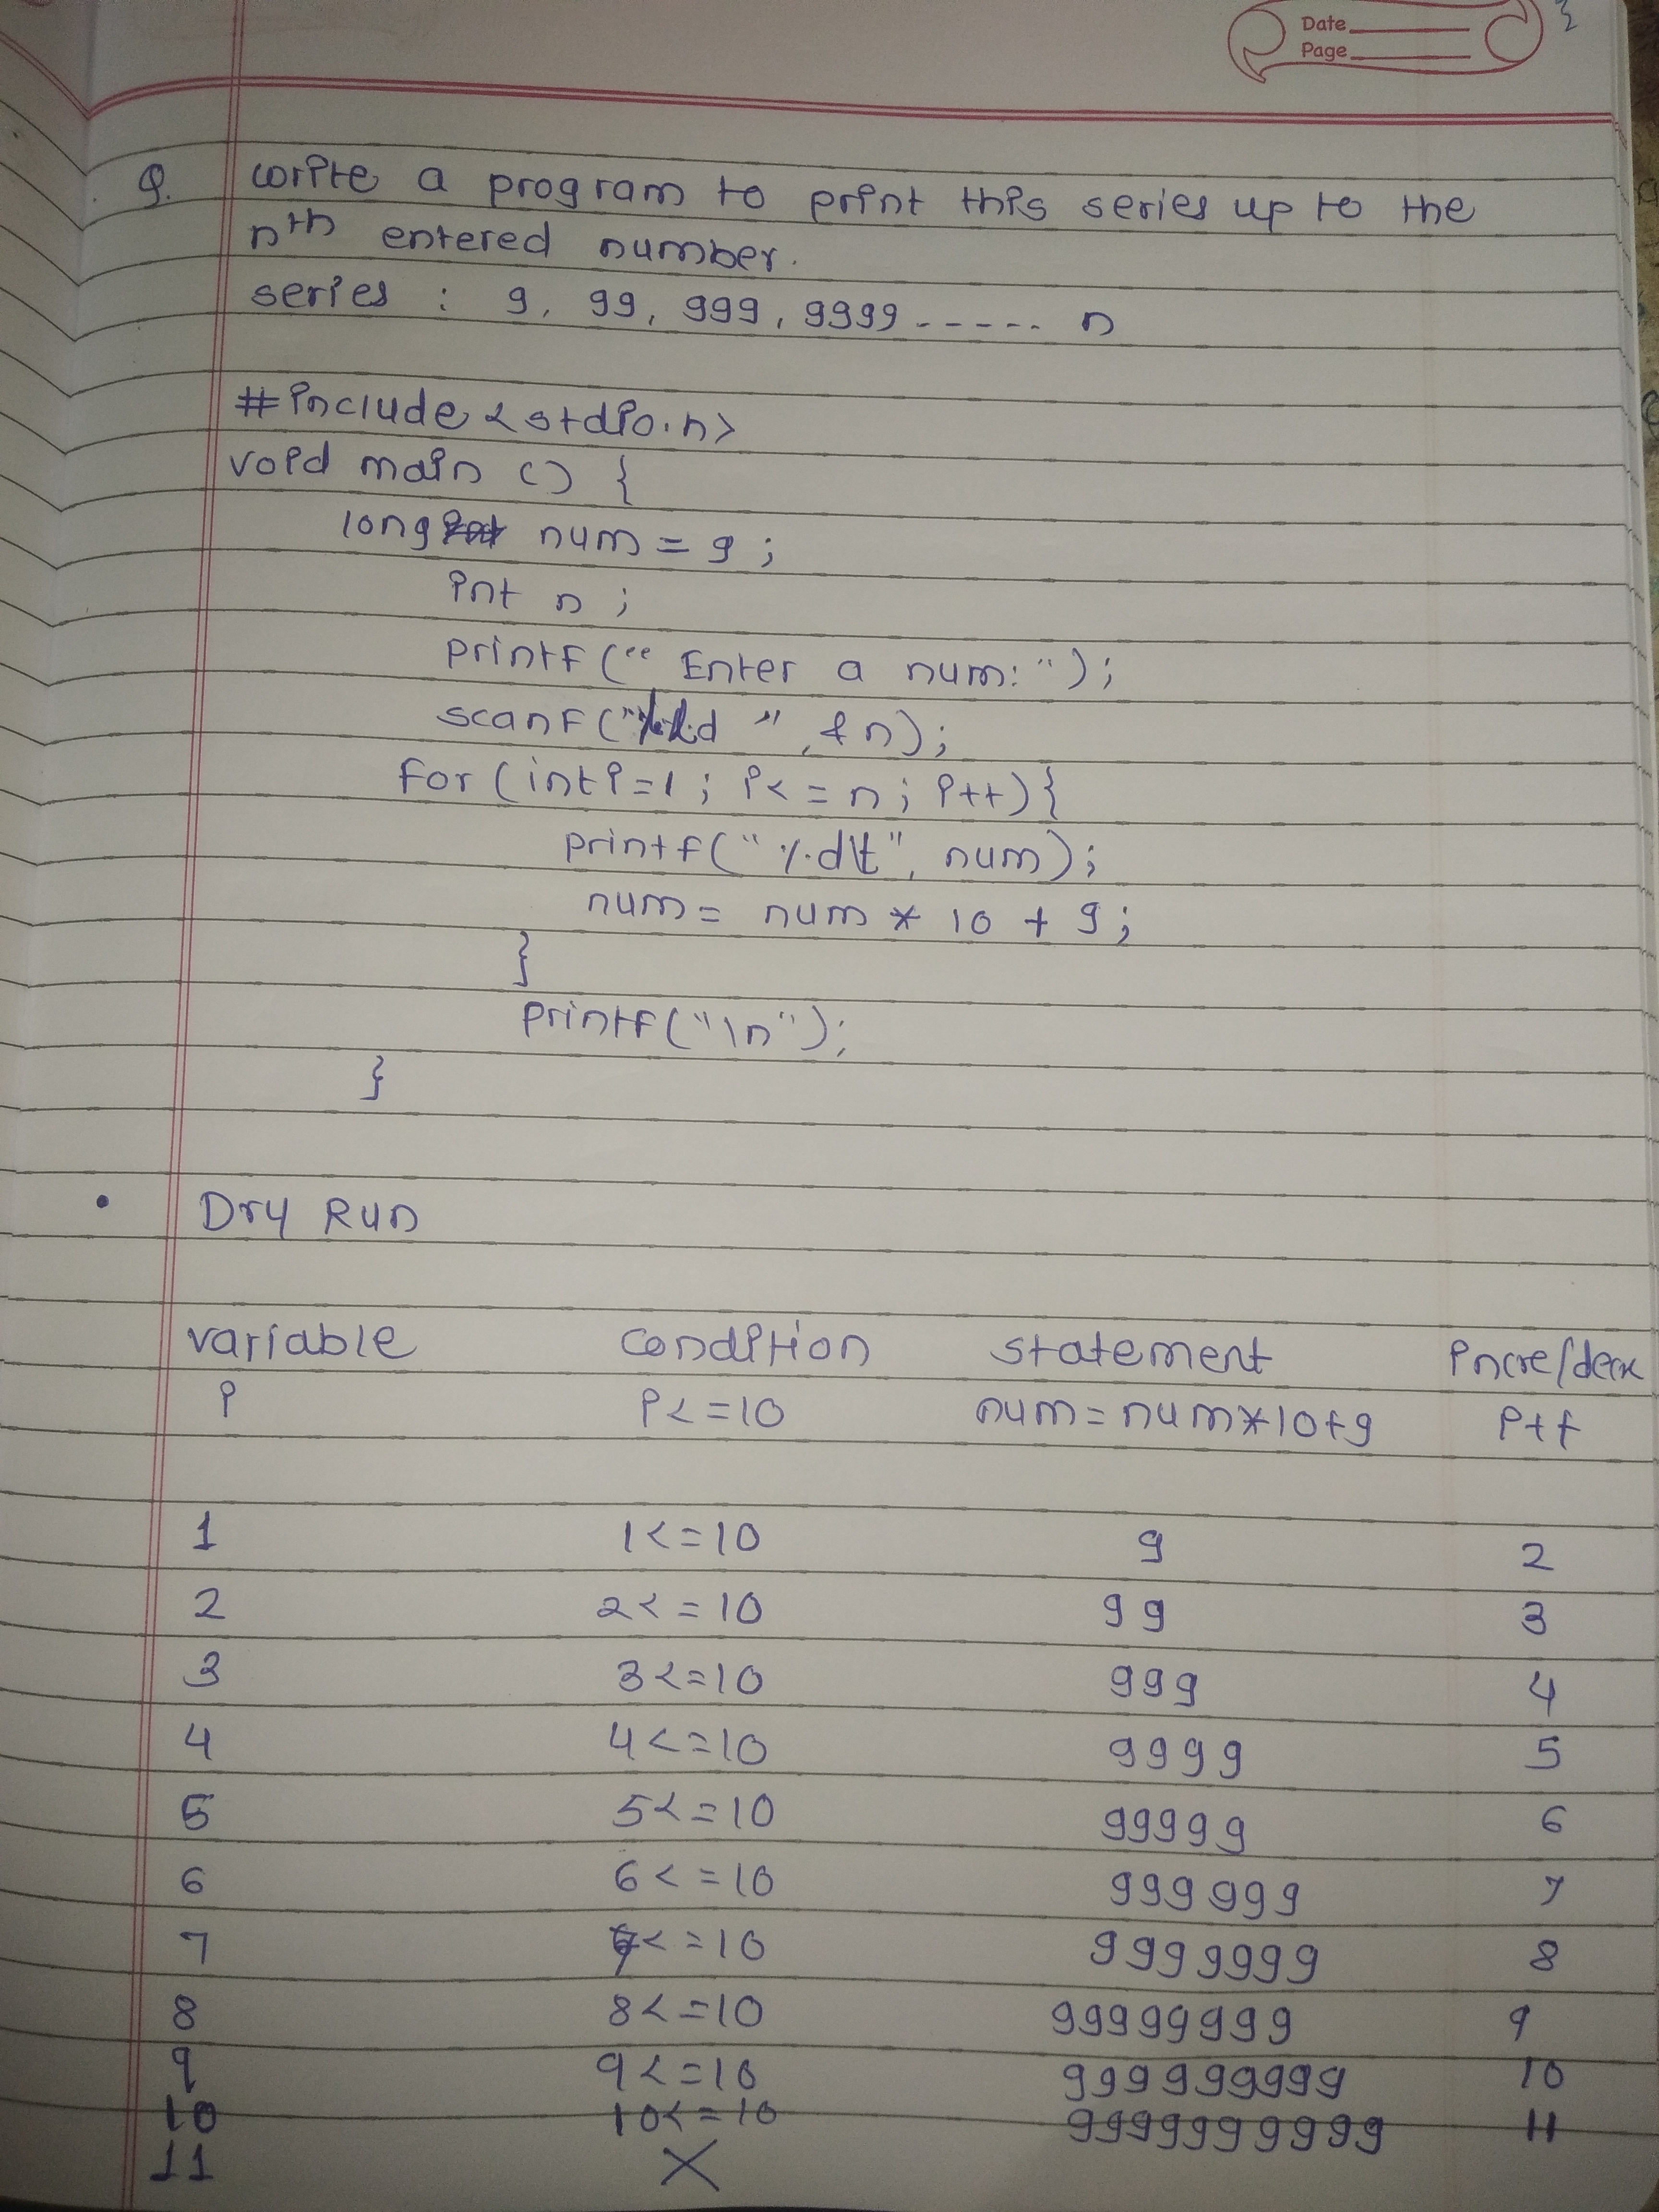 Date
Page
Q. write a program to print this series up to the
nth entered number.
series : 9, 99, 999, 9999 ----- n
#include <stdio.h>
void main () {
long num = 9 ;
int n ;
printf (" Enter a num: ");
scanf ("%d ", &n);
for (int i=1 ; i<=n ; i++) {
printf(" %d\t", num);
num = num * 10 + 9;
}
printf("\n");
}
• Dry Run
variable condition statement incre/decre
i i<=10 num=num*10+9 i++
1 1<=10 9 2
2 2<=10 99 3
3 3<=10 999 4
4 4<=10 9999 5
5 5<=10 99999 6
6 6<=10 999999 7
7 7<=10 9999999 8
8 8<=10 99999999 9
9 9<=10 999999999 10
10 10<=10 9999999999 11
11 X